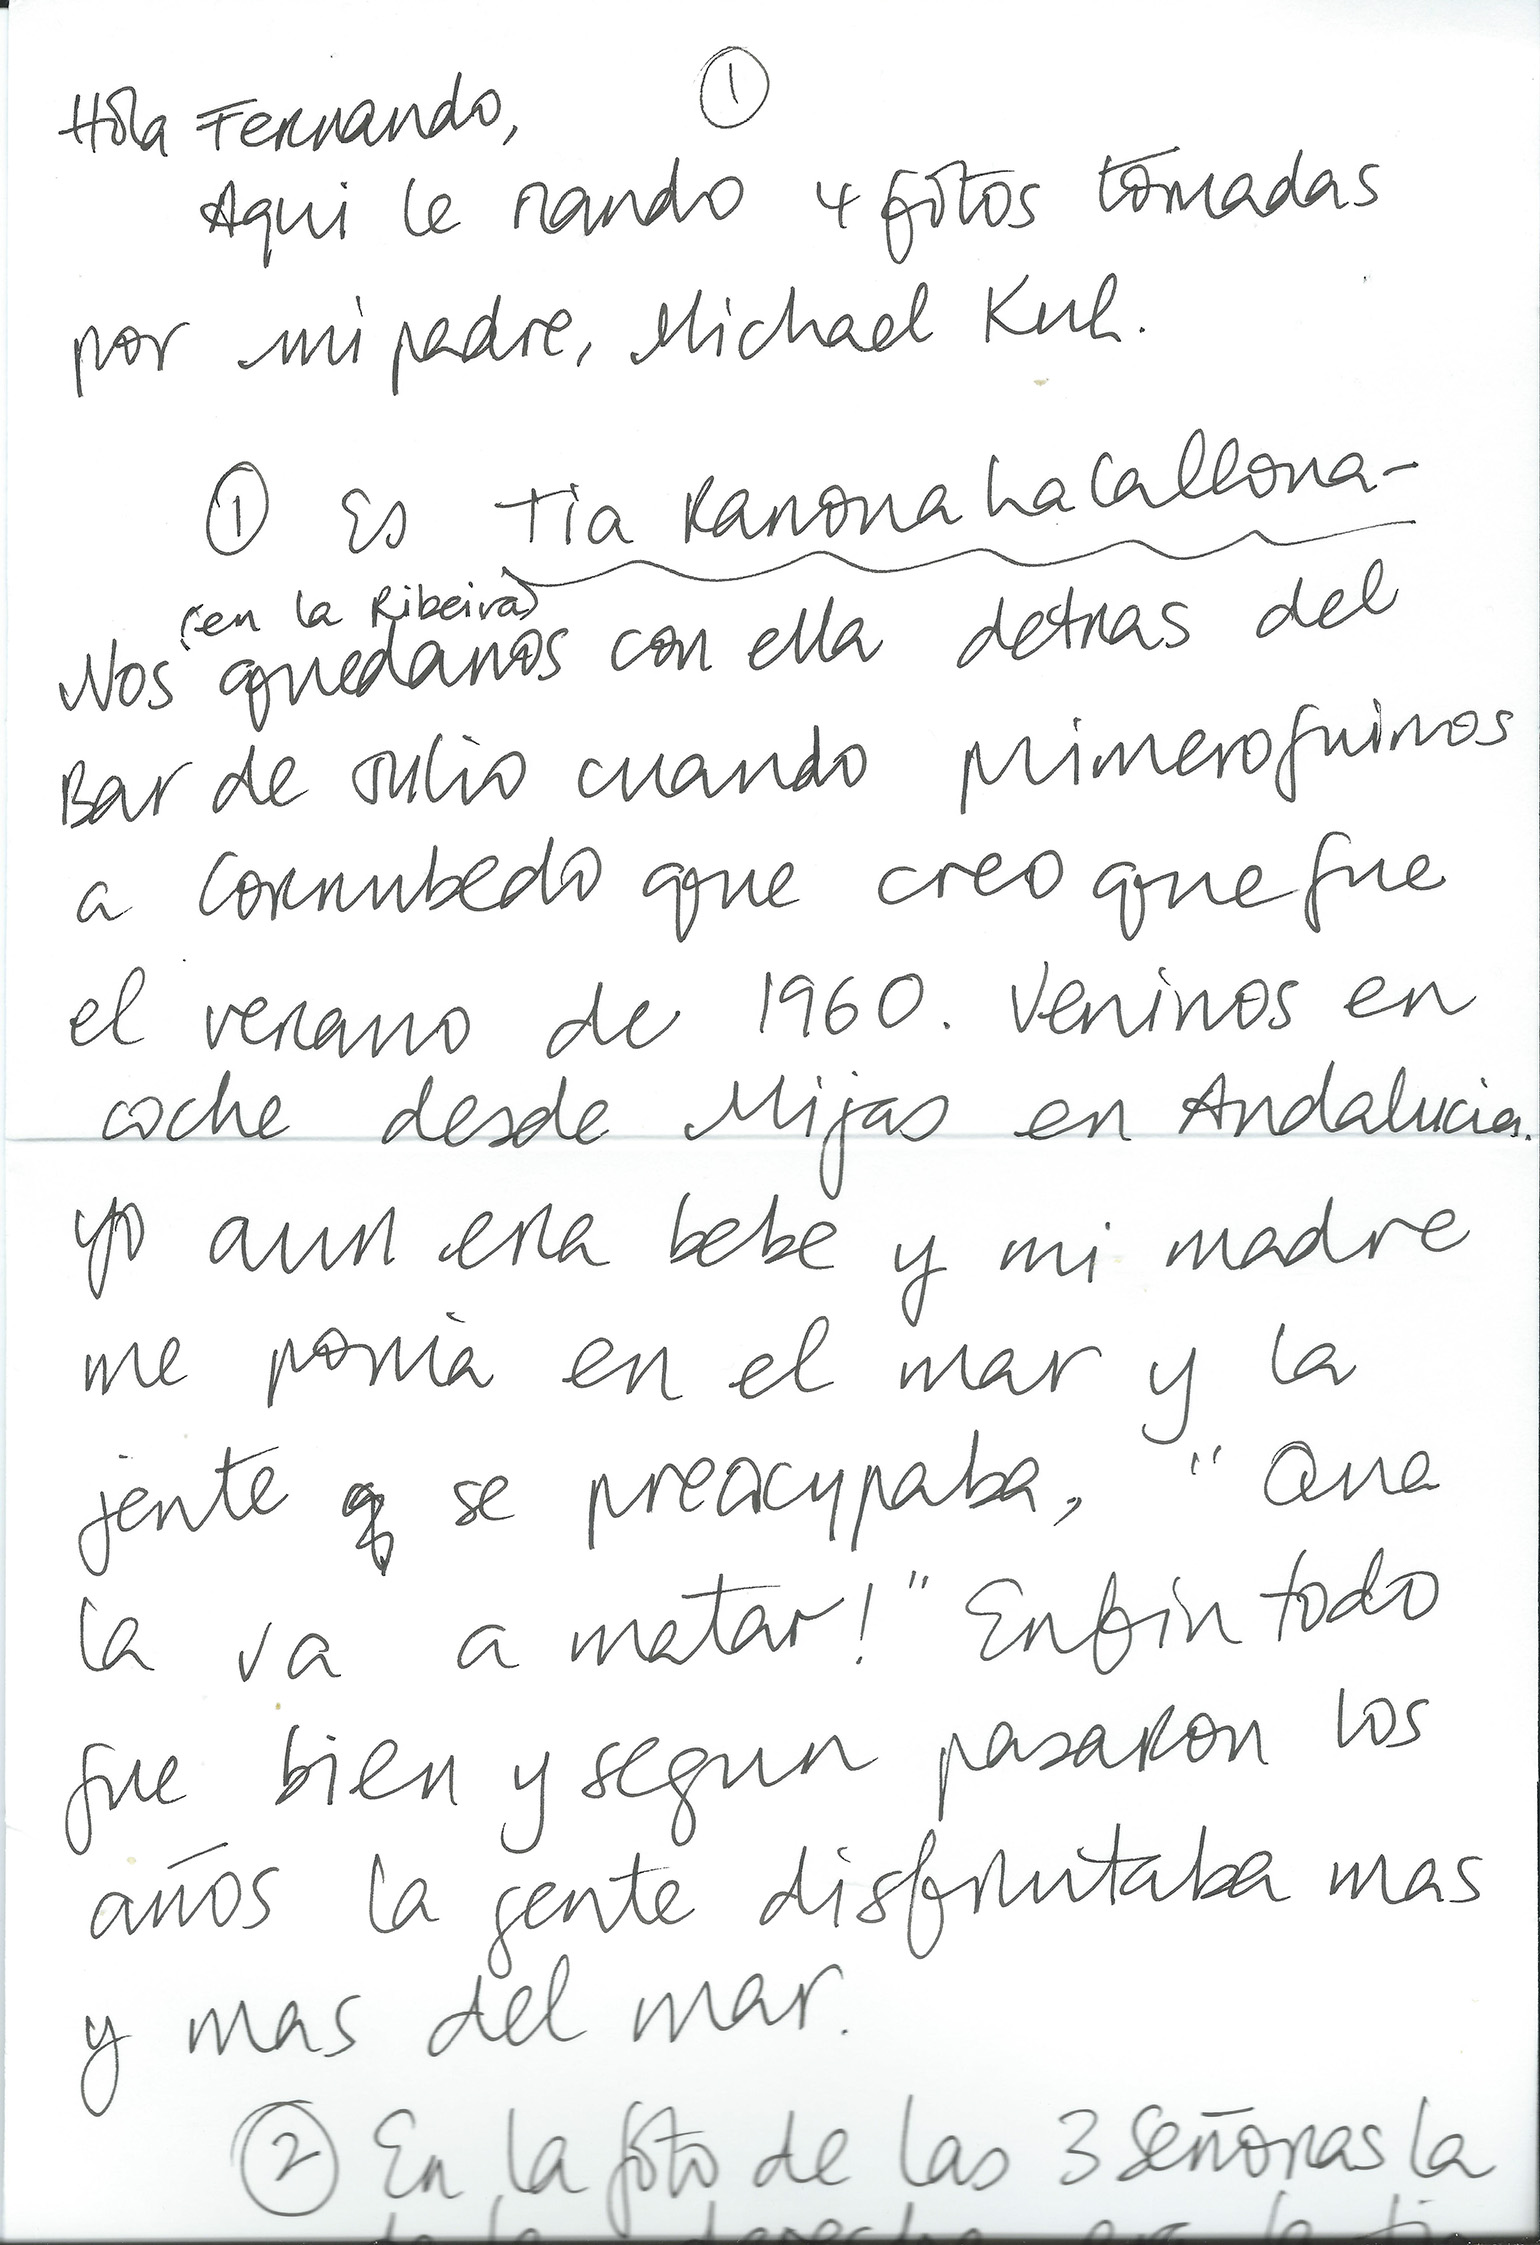 ①
Hola Fernando,
Aqui le mando 4 fotos tomadas
por mi padre, Michael Kuh.
① Es Tia Ramona La Callona-
(en la Ribeira)
Nos quedamos con ella detras del
Bar de Julio cuando primero fuimos
a Corrubedo que creo que fue
el verano de 1960. Venimos en
coche desde Mijas en Andalucia.
Yo aun era bebe y mi madre
me ponia en el mar y la
jente se preocupaba, "Que
la va a matar!" En fin todo
fue bien y segun pasaron los
años la gente disfrutaba mas
y mas del mar.
② En la foto de las 3 Señoras la
de la derecha era la tia